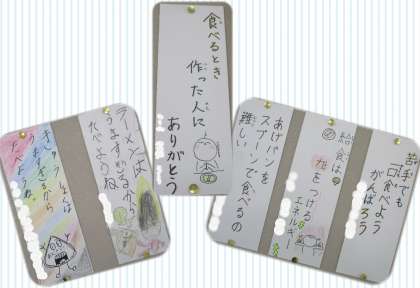 食べるとき
作った人に
ありがとう
苦手でも
一口食べよう
がんばろう
給食は
力をつける
エネルギー
あげパンを
スプーンで食べるの
難しい
ラーメンは
うますぎるから
たべようね
うますぎるから
たべようね